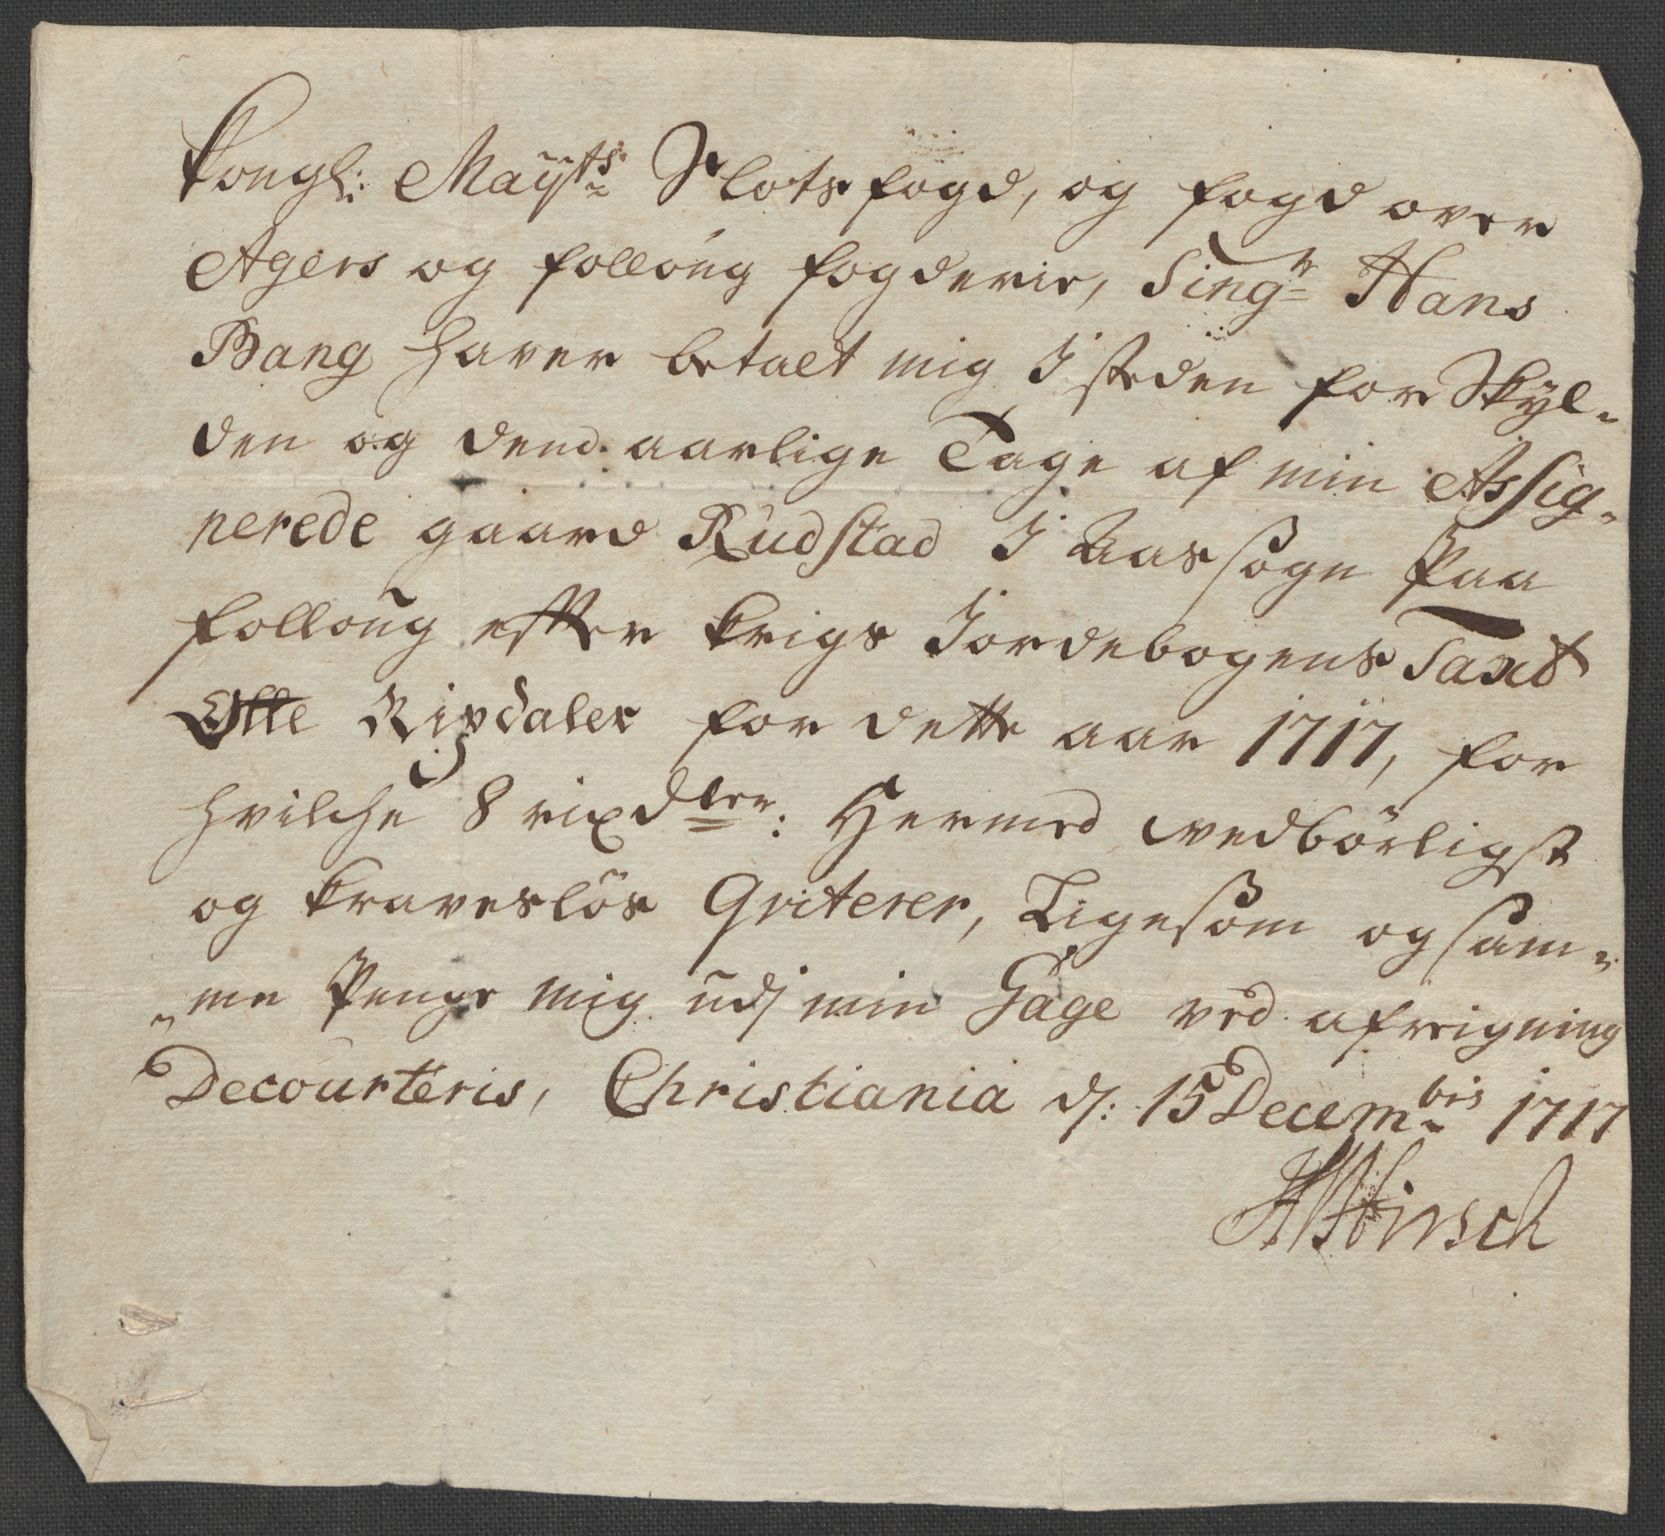 Kongl: Maÿts Slotsfogd, og fogd over
Agers og folloug fogderie, Singr Hans
Bang haver betalt mig I steden for Skÿl-
den og dend aarlige Tage af min Assig-
nerede gaard Rudstad I Aas sogn Paa
folloug efter krigs Jordebogens Taxt
Otte Rixdaler for dette aar 1717, for
hvilche 8 rixdlr: Hermed vedbörligst
og kraveslös Qviterer, Ligesom og sam-
me Penge mig udj min Gage ved afreigning
Decourteris, Christiania d: 15 Decembris 1717
Hirsch